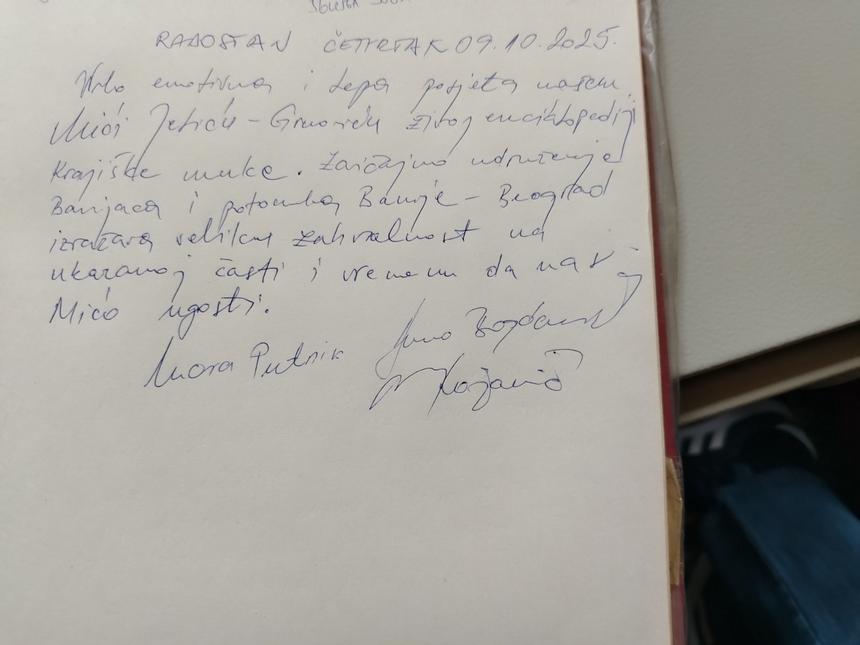 RADOSTAN ČETVRTAK 09.10.2025.
Vrlo emotivna i lepa posjeta našem
Mići Jeliću - Grnoviću živoj enciklopediji
Krajiške muke. Zavičajno udruženje
Banijaca i potomka Banije - Beograd
izražava veliku zahvalnost na
ukazanoj časti i vremenu da nas
Mićo ugosti.
Mara Putnik